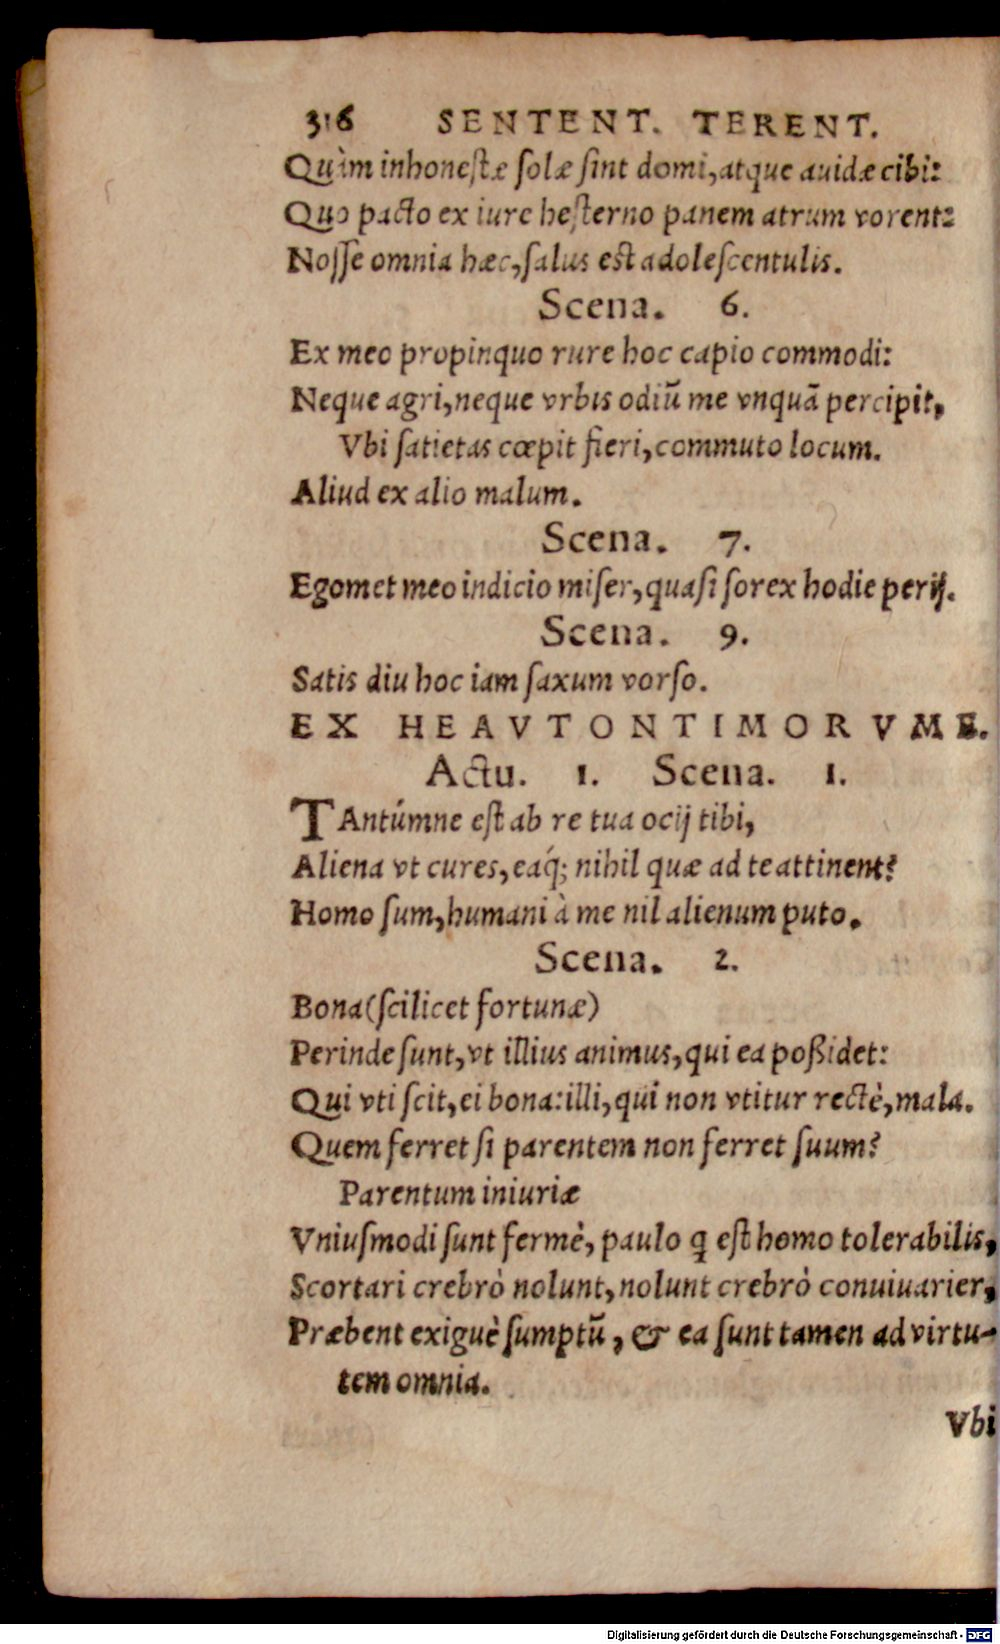 316 SENTENT. TERENT.
Quàm inhonestæ solæ sint domi, atque auidæ cibi:
Quo pacto ex iure hesterno panem atrum vorent:
Nosse omnia hæc, salus est adolescentulis.
Scena. 6.
Ex meo propinquo rure hoc capio commodi:
Neque agri, neque vrbis odiũ me vnquã percipit,
Vbi satietas cœpit fieri, commuto locum.
Aliud ex alio malum.
Scena. 7.
Egomet meo indicio miser, quasi sorex hodie perij.
Scena. 9.
Satis diu hoc iam saxum vorso.
EX HEAVTONTIMORVME.
Actu. 1. Scena. 1.
TAntúmne est ab re tua ocij tibi,
Aliena vt cures, eaq́; nihil quæ ad te attinent?
Homo sum, humani à me nil alienum puto.
Scena. 2.
Bona (scilicet fortunæ)
Perinde sunt, vt illius animus, qui ea poßidet:
Qui vti scit, ei bona: illi, qui non vtitur rectè, mala.
Quem ferret si parentem non ferret suum?
Parentum iniuriæ
Vniusmodi sunt fermè, paulo q̃ est homo tolerabilis,
Scortari crebrò nolunt, nolunt crebrò conuiuarier,
Præbent exiguè sumptũ, & ea sunt tamen ad virtu-
tem omnia.
Vbi
Digitalisierung gefördert durch die Deutsche Forschungsgemeinschaft - DFG